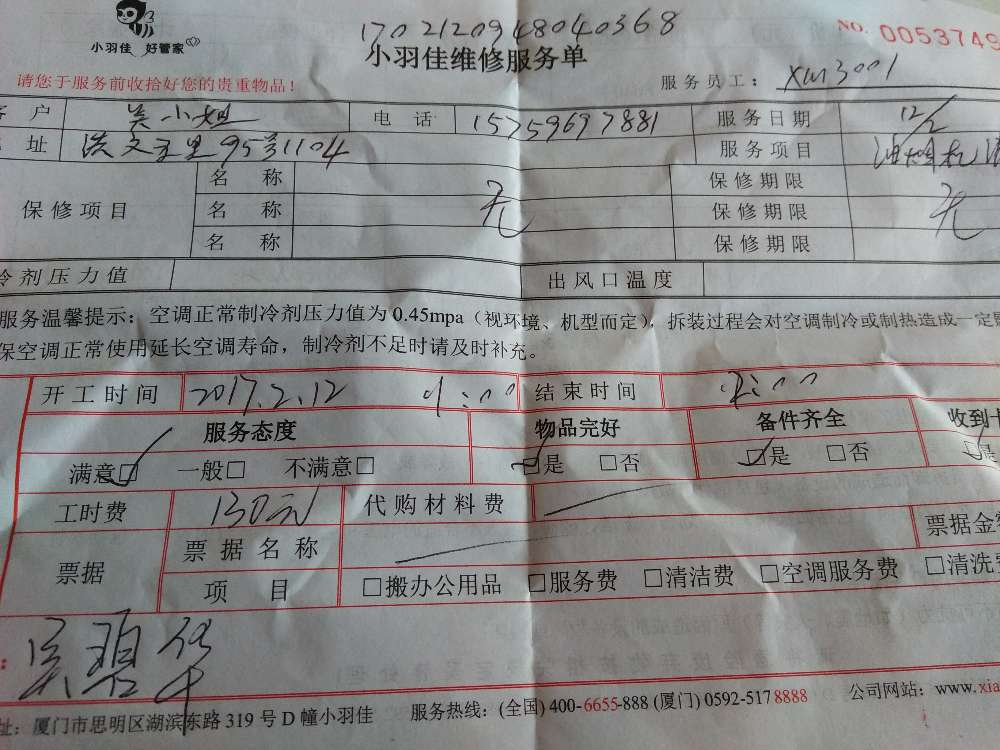 小羽佳 好管家
1702120948040368
NO. 0053749
小羽佳维修服务单
请您于服务前收拾好您的贵重物品！
服务员工： XM3001
户 吴小姐 电话 15759697881 服务日期 12/2
址 洪文五里95号1104 服务项目 油烟机清
名称 保修期限
保修项目 名称 无 保修期限 无
名称 保修期限
冷剂压力值 出风口温度
服务温馨提示：空调正常制冷剂压力值为0.45mpa（视环境、机型而定），拆装过程会对空调制冷或制热造成一定
保空调正常使用延长空调寿命，制冷剂不足时请及时补充。
开工时间 2017.2.12 :00 结束时间 :00
服务态度 物品完好 备件齐全 收到
满意□ 一般□ 不满意□ □是 □否 □是 □否 □是
工时费 130元 代购材料费
票据 票据名称 票据金
项目 □搬办公用品 □服务费 □清洁费 □空调服务费 □清洗
吴碧华
址：厦门市思明区湖滨东路319号D幢小羽佳 服务热线：(全国) 400-6655-888 (厦门) 0592-5178888 公司网站：www.xia